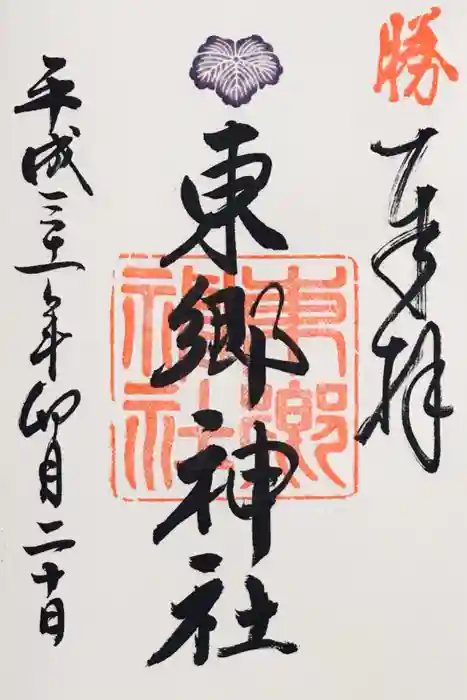 勝
奉拝
東郷神社
東郷
神社
平成三十一年卯月二十日